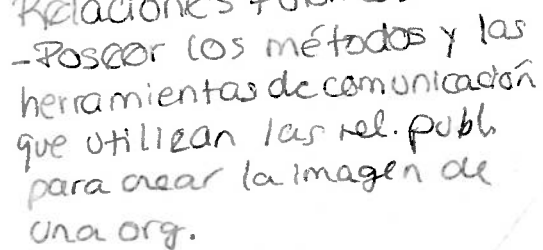 Relaciones
-Poseer los métodos y las
herramientas de comunicación
que utilizan las rel. publ.
para crear la imagen de
una org.